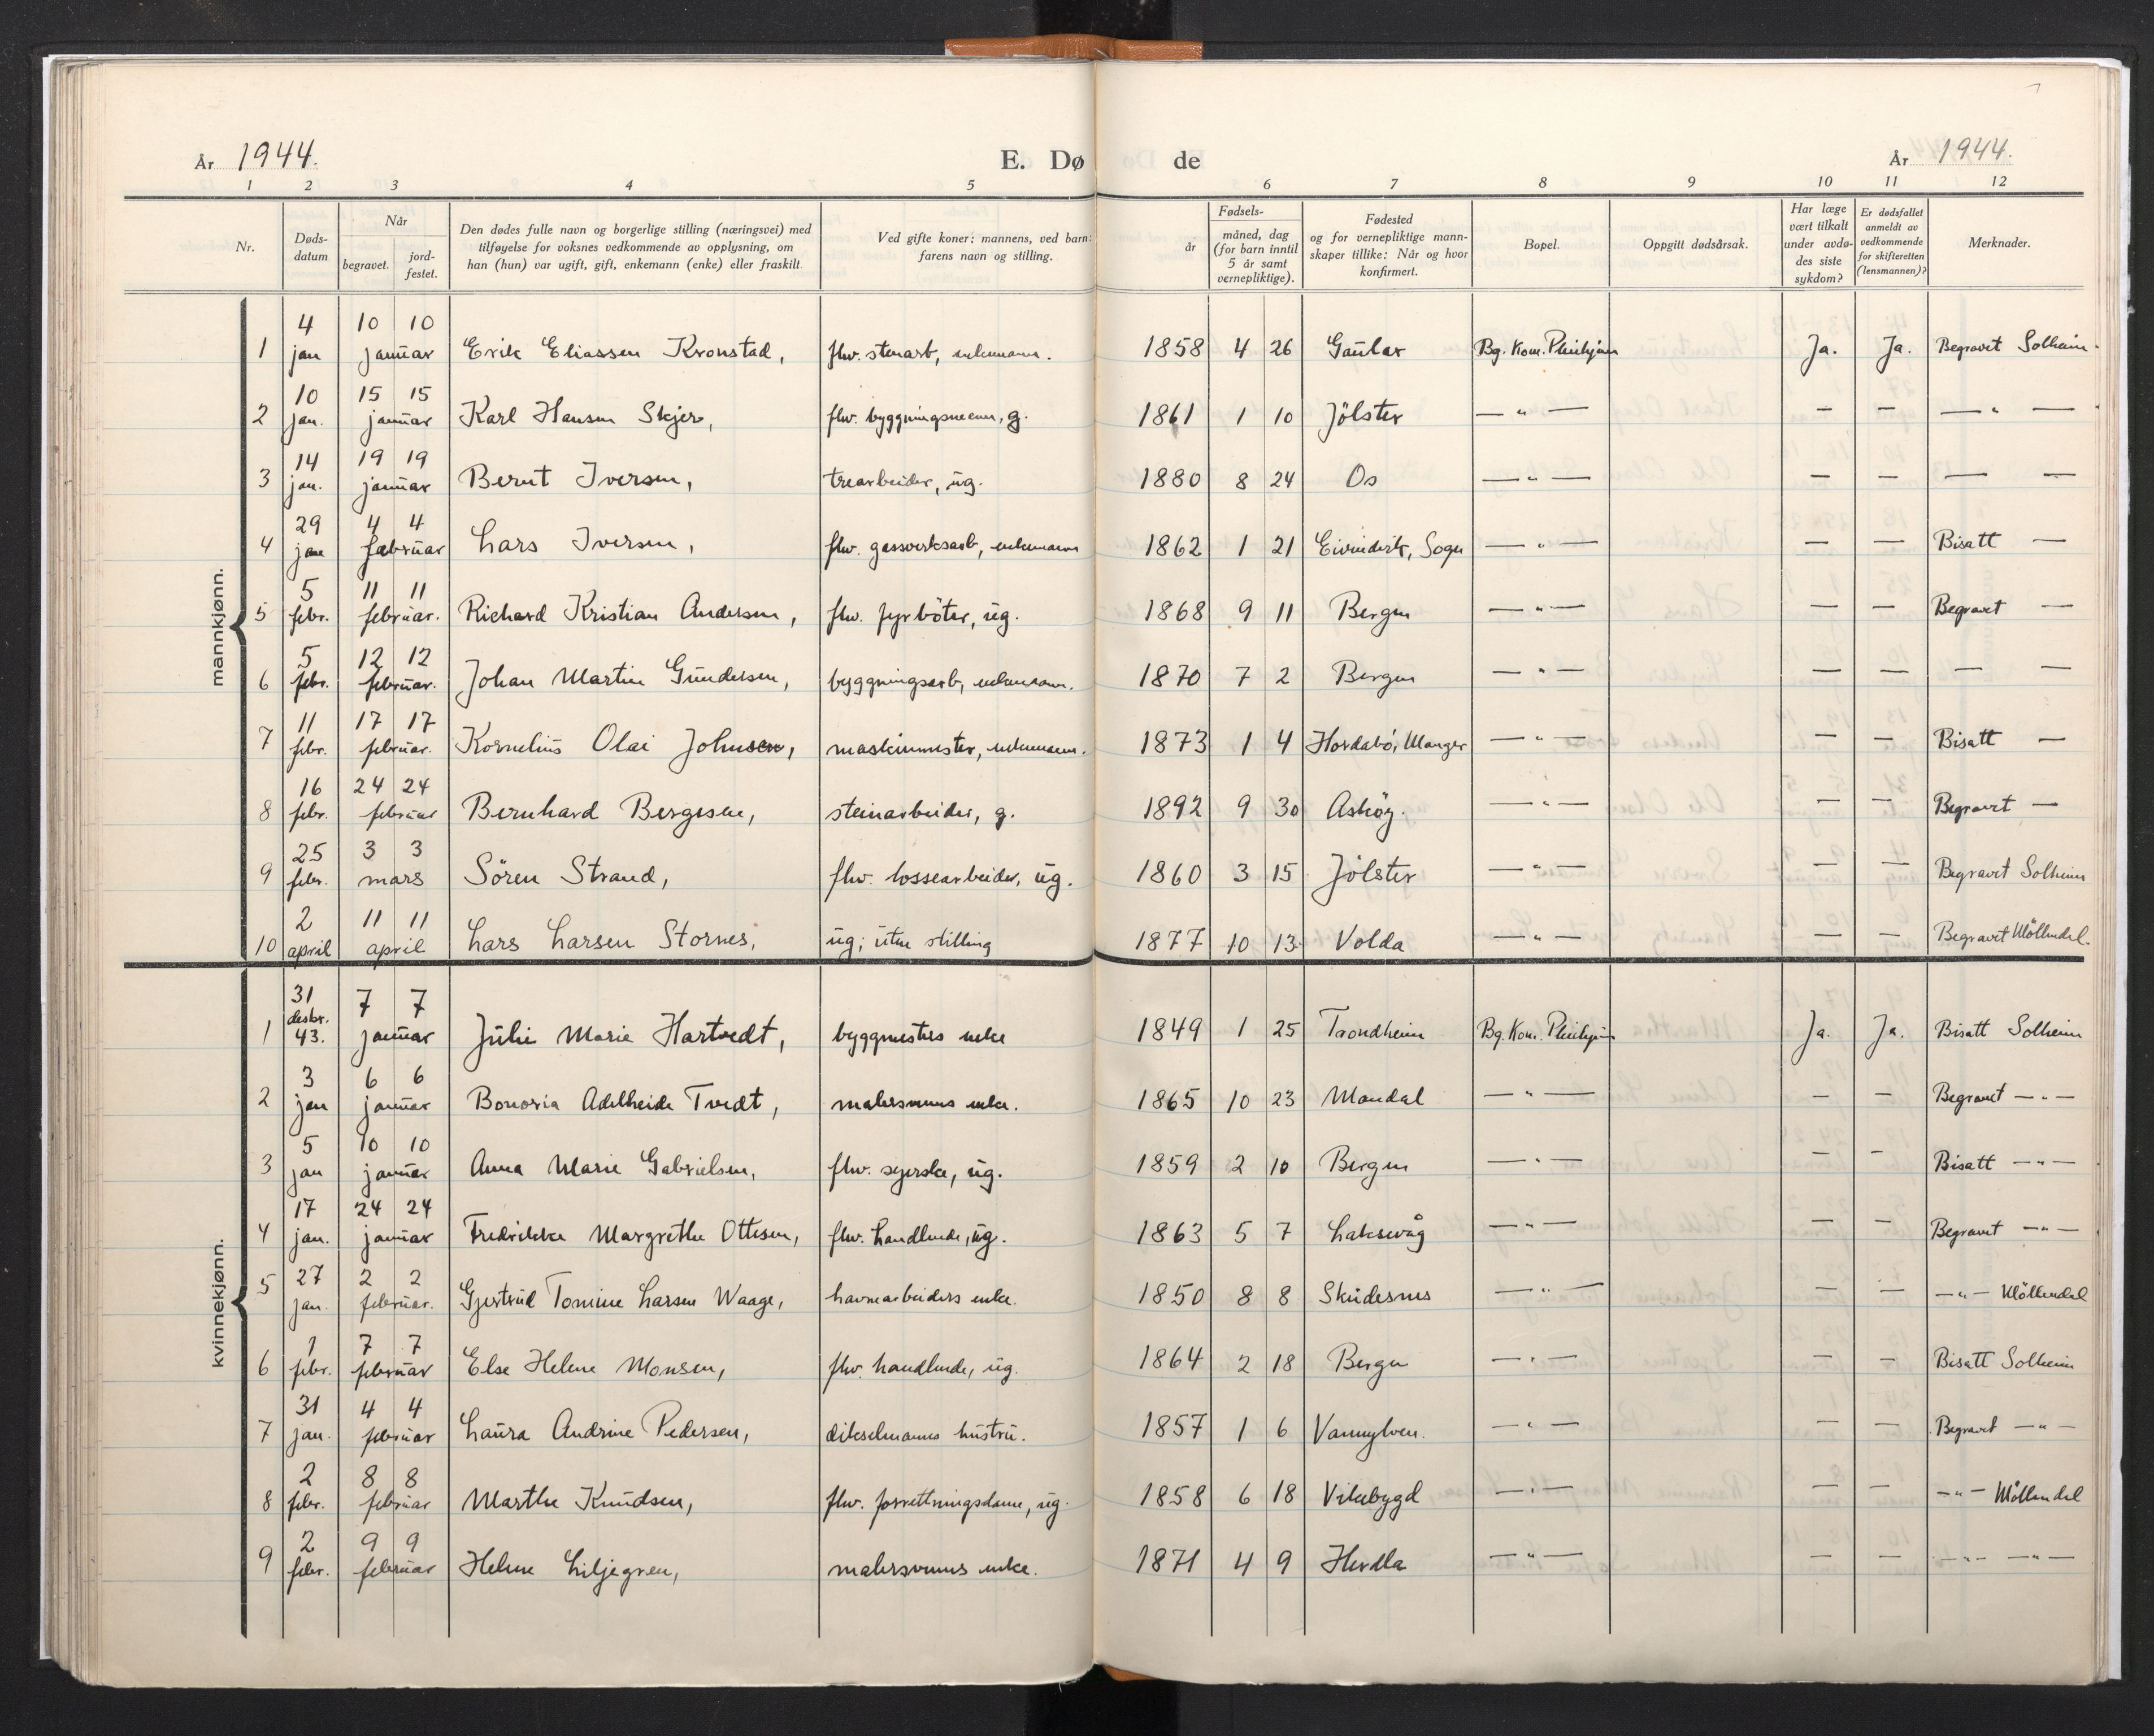 År 1944.
E. Dø de
År 1944.
1 2 3 4 5 6 7 8 9 10 11 12
Nr.
Døds-
datum
Når
begravet.
jord-
festet.
Den dødes fulle navn og borgerlige stilling (næringsvei) med
tilføyelse for voksnes vedkommende av opplysning, om
han (hun) var ugift, gift, enkemann (enke) eller fraskilt.
Ved gifte koner: mannens, ved barn:
farens navn og stilling.
år
Fødsels-
måned, dag
(for barn inntil
5 år samt
vernepliktige).
Fødested
og for vernepliktige mann-
skaper tillike: Når og hvor
konfirmert.
Bopel.
Oppgitt dødsårsak.
Har læge
vært tilkalt
under avdø-
des siste
sykdom?
Er dødsfallet
anmeldt av
vedkommende
for skifteretten
(lensmannen)?
Merknader.
mannkjønn.
4 10 10
1 jan januar Erik Eliassen Kronstad, fhv. stuart, enkemann. 1858 4 26 Gaular Bg. Kom. Pleiehjem Ja. Ja. Begravet Solheim.
10 15 15
2 jan. januar Karl Hansen Skjer, fhv. byggningsmann, g. 1861 1 10 Jölster — " — — — — " —
14 19 19
3 jan. januar Bernt Iversen, trearbeider, ug. 1880 8 24 Os — " — — — — —
29 4 4
4 jan februar Lars Iversen, fhv. gassverksarb, enkemann 1862 1 21 Eivindvik, Sogn — " — — — Bisatt —
5 11 11
5 febr. februar. Richard Kristian Andersen, fhv. fyrböter, ug. 1868 9 11 Bergen — " — — — Begravet —
5 12 12
6 febr. februar. Johan Martin Gundersen, byggningsarb, enkemann. 1870 7 2 Bergen — " — — — — —
11 17 17
7 febr. februar. Kornelius Olai Johnsen, maskinmester, enkemann. 1873 1 4 Hordabö, Manger — " — — — Bisatt —
16 24 24
8 febr. februar Bernhard Bergesen, steinarbeider, g. 1892 9 30 Asköy. — " — — — Begravet —
25 3 3
9 febr. mars Sören Strand, fhv. lossearbeider, ug. 1860 3 15 Jölster — " — — — Begravet Solheim
2 11 11
10 april april Lars Larsen Stornes, ug; uten stilling 1877 10 13 Volda — " — — — Begravet Möllendal.
kvinnekjønn.
31 7 7
desbr.
1 43. januar Julie Marie Hartvedt, byggmesters enke 1849 1 25 Trondheim Bg. Kom. Pleiehjem Ja. Ja. Bisatt Solheim
3 6 6
2 jan januar Bonoria Adelheide Tvedt, malersvenns enke. 1865 10 23 Mandal — " — — — Begravet — " —
5 10 10
3 jan januar Anna Marie Gabrielsen, fhv. syerske, ug. 1859 2 10 Bergen — " — — — Bisatt — " —
17 24 24
4 jan. januar Fredrikke Margrethe Ottesen, fhv. handlende, ug. 1863 5 7 Laksevåg — " — — — Begravet — " —
27 2 2
5 jan. februar. Gjertrud Tomine Larsen Waage, havnearbeiders enke. 1850 8 8 Skudesnes — " — — — — " — Möllendal
1 7 7
6 febr. februar Else Helene Monsen, fhv. handlende, ug. 1864 2 18 Bergen — " — — — Bisatt Solheim
31 4 4
7 jan. februar Laura Andrine Pedersen, dikselmanns hustru. 1857 1 6 Vannylven. — " — — — Begravet — " —
2 8 8
8 febr. februar Marthe Knudsen, fhv. forrettningsdame, ug. 1858 6 18 Vikebygd — " — — — — " — Möllendal
2 9 9
9 febr. februar Helene Liljegren, malersvenns enke. 1871 4 9 Herdla — " — — — — " — — " —